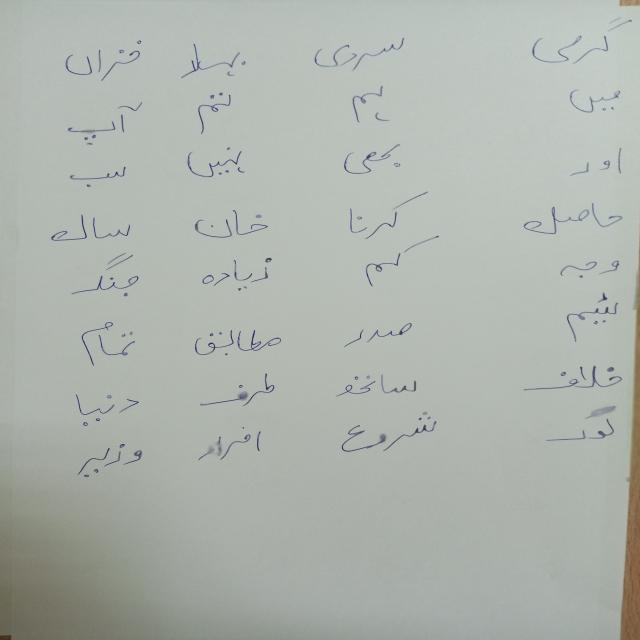 گرمی سردی پہلا خزاں
میں ہم تم آپ
اور بھی نہیں سب
حاصل کرنا خان سال
وجہ کم زیادہ جنگ
ٹیم صدر مطابق تمام
خلاف ساتھ طرف دنیا
لوگ شروع افراد وزیر